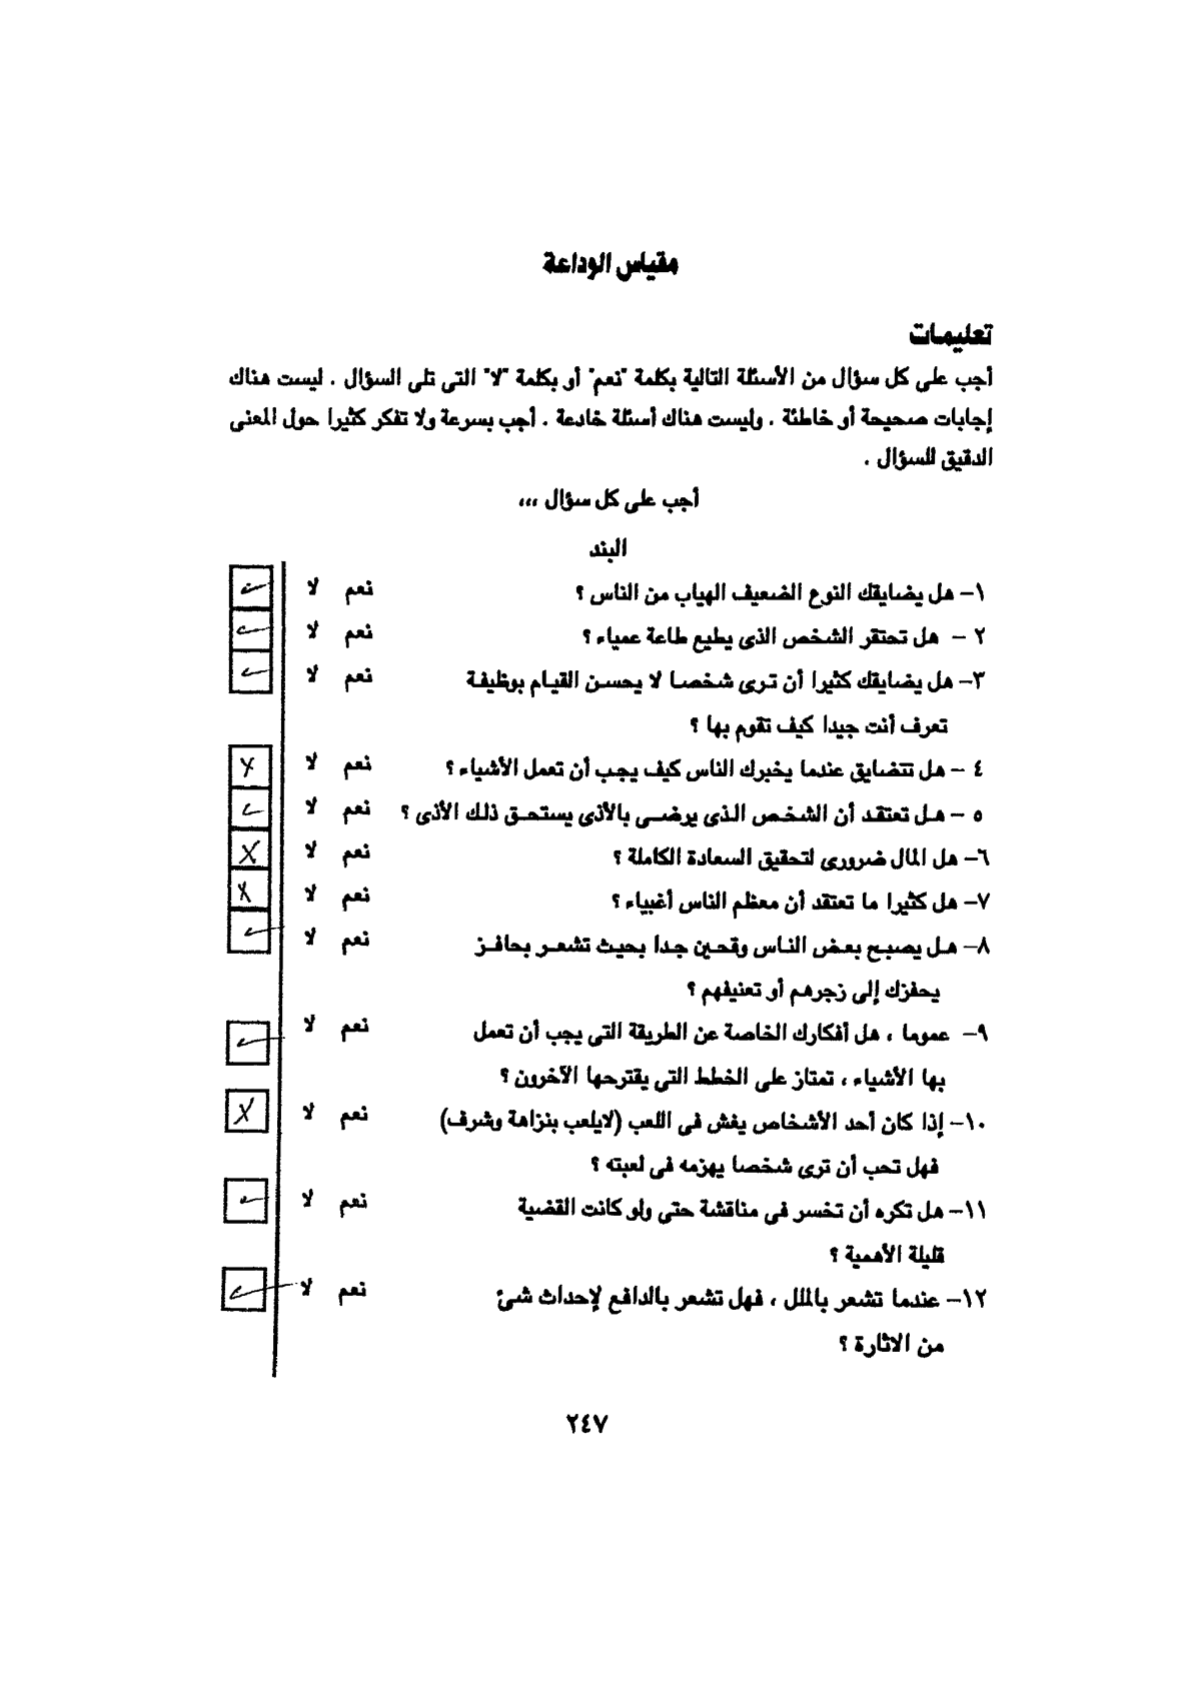 مقياس الوداعة
تعليمات
أجب على كل سؤال من الأسئلة التالية بكلمة "نعم" أو بكلمة "لا" التى تلى السؤال . ليست هناك
إجابات صحيحة أو خاطئة . وليست هناك أسئلة خادعة . أجب بسرعة ولا تفكر كثيرا حول المعنى
الدقيق للسؤال .
أجب على كل سؤال ،،،
البند
١– هل يضايقك النوع الضعيف الهياب من الناس ؟ نعم لا ✓
٢ – هل تحتقر الشخص الذى يطيع طاعة عمياء ؟ نعم لا ✓
٣– هل يضايقك كثيرا أن ترى شخصا لا يحسن القيام بوظيفة نعم لا ✓
تعرف أنت جيدا كيف تقوم بها ؟
٤ – هل تتضايق عندما يخبرك الناس كيف يجب أن تعمل الأشياء ؟ نعم لا X
٥ – هل تعتقد أن الشخص الذى يرضى بالأذى يستحق ذلك الأذى ؟ نعم لا ✓
٦– هل المال ضرورى لتحقيق السعادة الكاملة ؟ نعم لا X
٧– هل كثيرا ما تعتقد أن معظم الناس أغبياء ؟ نعم لا X
٨– هل يصبح بعض الناس وقحين جدا بحيث تشعر بحافز نعم لا ✓
يحفزك إلى زجرهم أو تعنيفهم ؟
٩– عموما ، هل أفكارك الخاصة عن الطريقة التى يجب أن تعمل نعم لا ✓
بها الأشياء ، تمتاز على الخطط التى يقترحها الآخرون ؟
١٠– إذا كان أحد الأشخاص يغش فى اللعب (لايلعب بنزاهة وشرف) نعم لا X
فهل تحب أن ترى شخصا يهزمه فى لعبته ؟
١١– هل تكره أن تخسر فى مناقشة حتى ولو كانت القضية نعم لا ✓
قليلة الأهمية ؟
١٢– عندما تشعر بالملل ، فهل تشعر بالدافع لإحداث شئ نعم لا ✓
من الاثارة ؟
٢٤٧